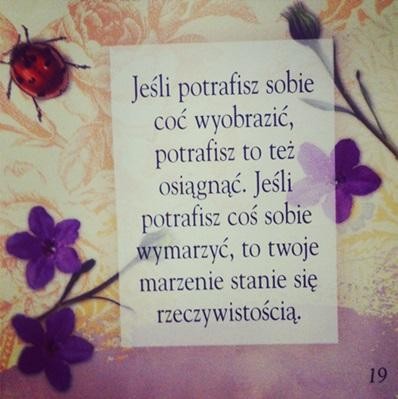 Jeśli potrafisz sobie
coć wyobrazić,
potrafisz to też
osiągnąć. Jeśli
potrafisz coś sobie
wymarzyć, to twoje
marzenie stanie się
rzeczywistością.
19